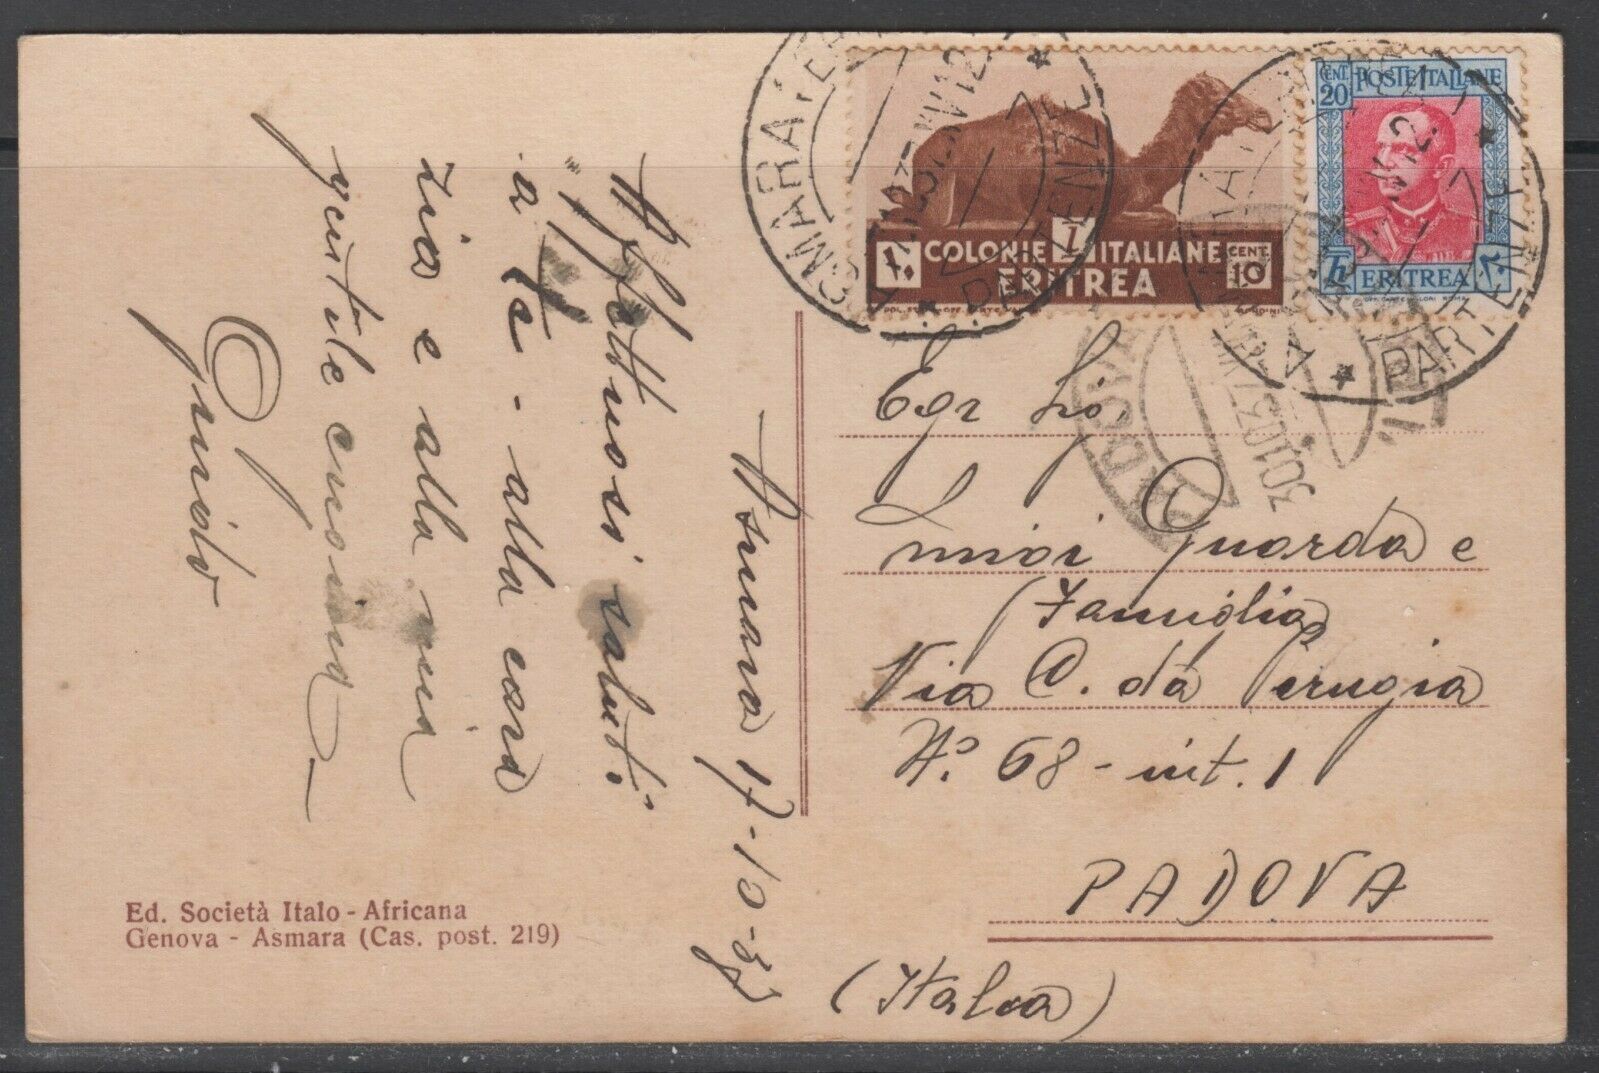 Asmara 17-10-37
Affettuosi saluti
a te - alla cara
zia e alla mia
gentile cugina -
Guido
Ed. Società Italo-Africana
Genova - Asmara (Cas. post. 219)
COLONIE ITALIANE
ERITREA
CENT. 10
CENT. 20
POSTE ITALIANE
ERITREA
ASMARA
PARTENZE
PARTENZE
PADOVA
30.10.37
Egr Sig.
Luigi Guarda e
Famiglia
Via P. da Perugia
N.º 68 - int. 1
PADOVA
(Italia)